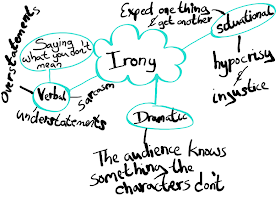 Irony
Saying
what you don't
mean
Verbal
Overstatements
understatements
Sarcasm
Dramatic
The audience knows
something the
characters don't
Expect one thing
& get another
Situational
hypocrisy
injustice